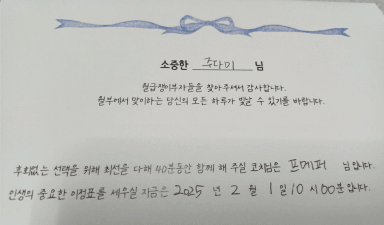 소중한 주다미 님
월급쟁이부자들을 찾아주셔서 감사합니다.
월부에서 맞이하는 당신의 모든 하루가 빛날 수 있기를 바랍니다.
후회없는 선택을 위해 최선을 다해 40분동안 함께 해 주실 코치님은 프메퍼 님입니다.
인생의 중요한 이정표를 세우실 지금은 2025 년 2 월 1 일 10 시 00 분 입니다.